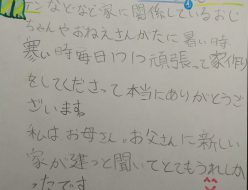 テンなどなど家に関係しているおじ
ちゃんやおねえさんかたに暑い時
寒い時毎日1つ1つ頑張って家作り
をしてくださって本当にありがとうご
ざいます。
私はお母さん。お父さんに新しい
家が建っと聞いてとてもうれしか
ったです